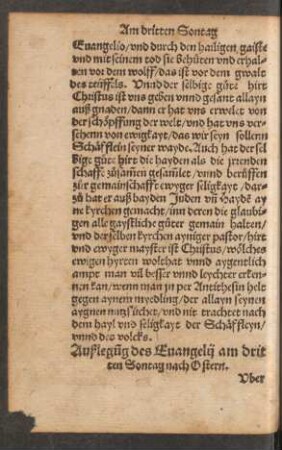 Am dritten Sontag
Euangelio/vnd durch den hailigen gaiste
vnd mit seinem tod sie behüten vnd erhal-
ten vor dem wolff/das ist vor dem gwalt
des teüffels. Vnnd der selbige güte hirt
Christus ist vns geben vnnd gesant allayn
auß gnaden/dann er hat vns erwölet von
der schöpffung der welt/vnd hat vns ver-
sehenn von ewigkayt/das wir seyn sollenn
Schäfflein seyner wayde. Auch hat der sel
bige güte hirt die hayden als die jrrenden
schaffe zůsamen gesamlet/vnnd berüffen
zůr gemainschafft ewyger seligkayt/dar-
zů hat er auß hayden Juden vn̄ Haydē ay
ne kyrchen gemacht/inn deren die glaubi-
gen alle gaystliche güter gemain halten/
vnd der selben kyrchen ayniger pastor/hirt
vnd ewyger mayster ist Christus/wölches
ewigen hyrten wolthat vnnd aygentlich
ampt man vil besser vnnd leychter erken-
nen kan/wenn man jn per Antithesin helt
gegen aynem myedling/der allayn seynen
aygnen nutz sůchet/vnd nit trachtet nach
dem hayl vnd seligkayt der Schäffleyn/
vnnd des volcks.
Außlegūg des Euangelij am drit
ten Sontag nach Ostern.
Vber